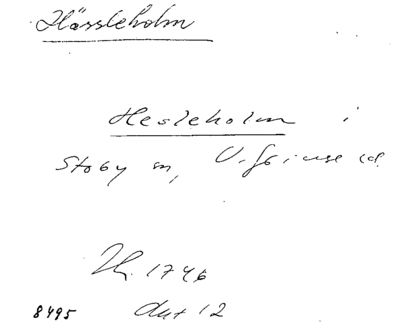 Hässleholm
Hesleholm i
Stoby sn, V. Göinge hd.
Th. 1746
8495